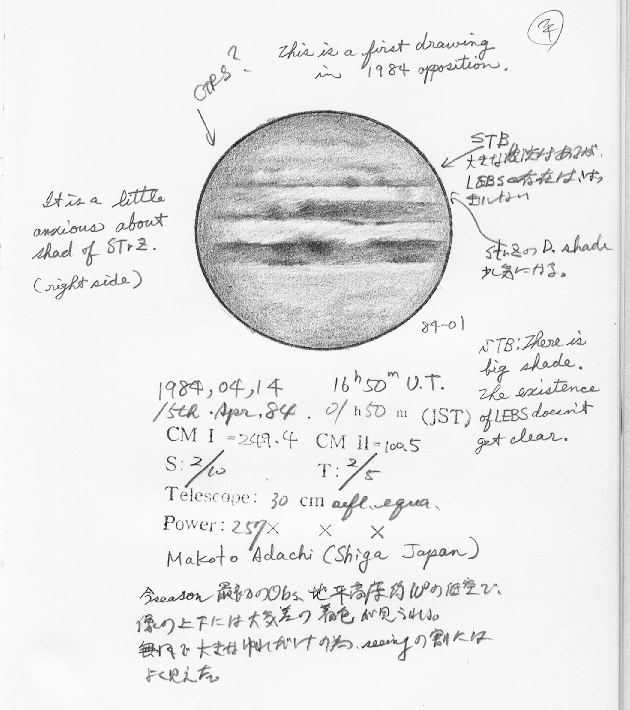 This is a first drawing
in 1984 opposition.
OOPS?
STB
大きな はあるが、
LEBSの存在は、はっ
きりしない
It is a little
anxious about
shad of STrZ.
(right side)
StrZのD. shade
が気にかかる。
84-01
STB: There is
big shade.
The existence
of LEBS doesn't
get clear.
1984, 04, 14 16h 50m U.T.
15th. Apr. 84. 01 h 50 m (JST)
CM I = 249.4 CM II = 100.5
S: 2/10 T: 2/5
Telescope: 30 cm refl. equa.
Power: 257× × ×
Makoto Adachi (Shiga Japan)
今season 最初のObs. 地平高度約 の低空で、
像の上下には大気差の着色が見られる。
で大きなゆれだけの為、seeingの割には
よく見えた。